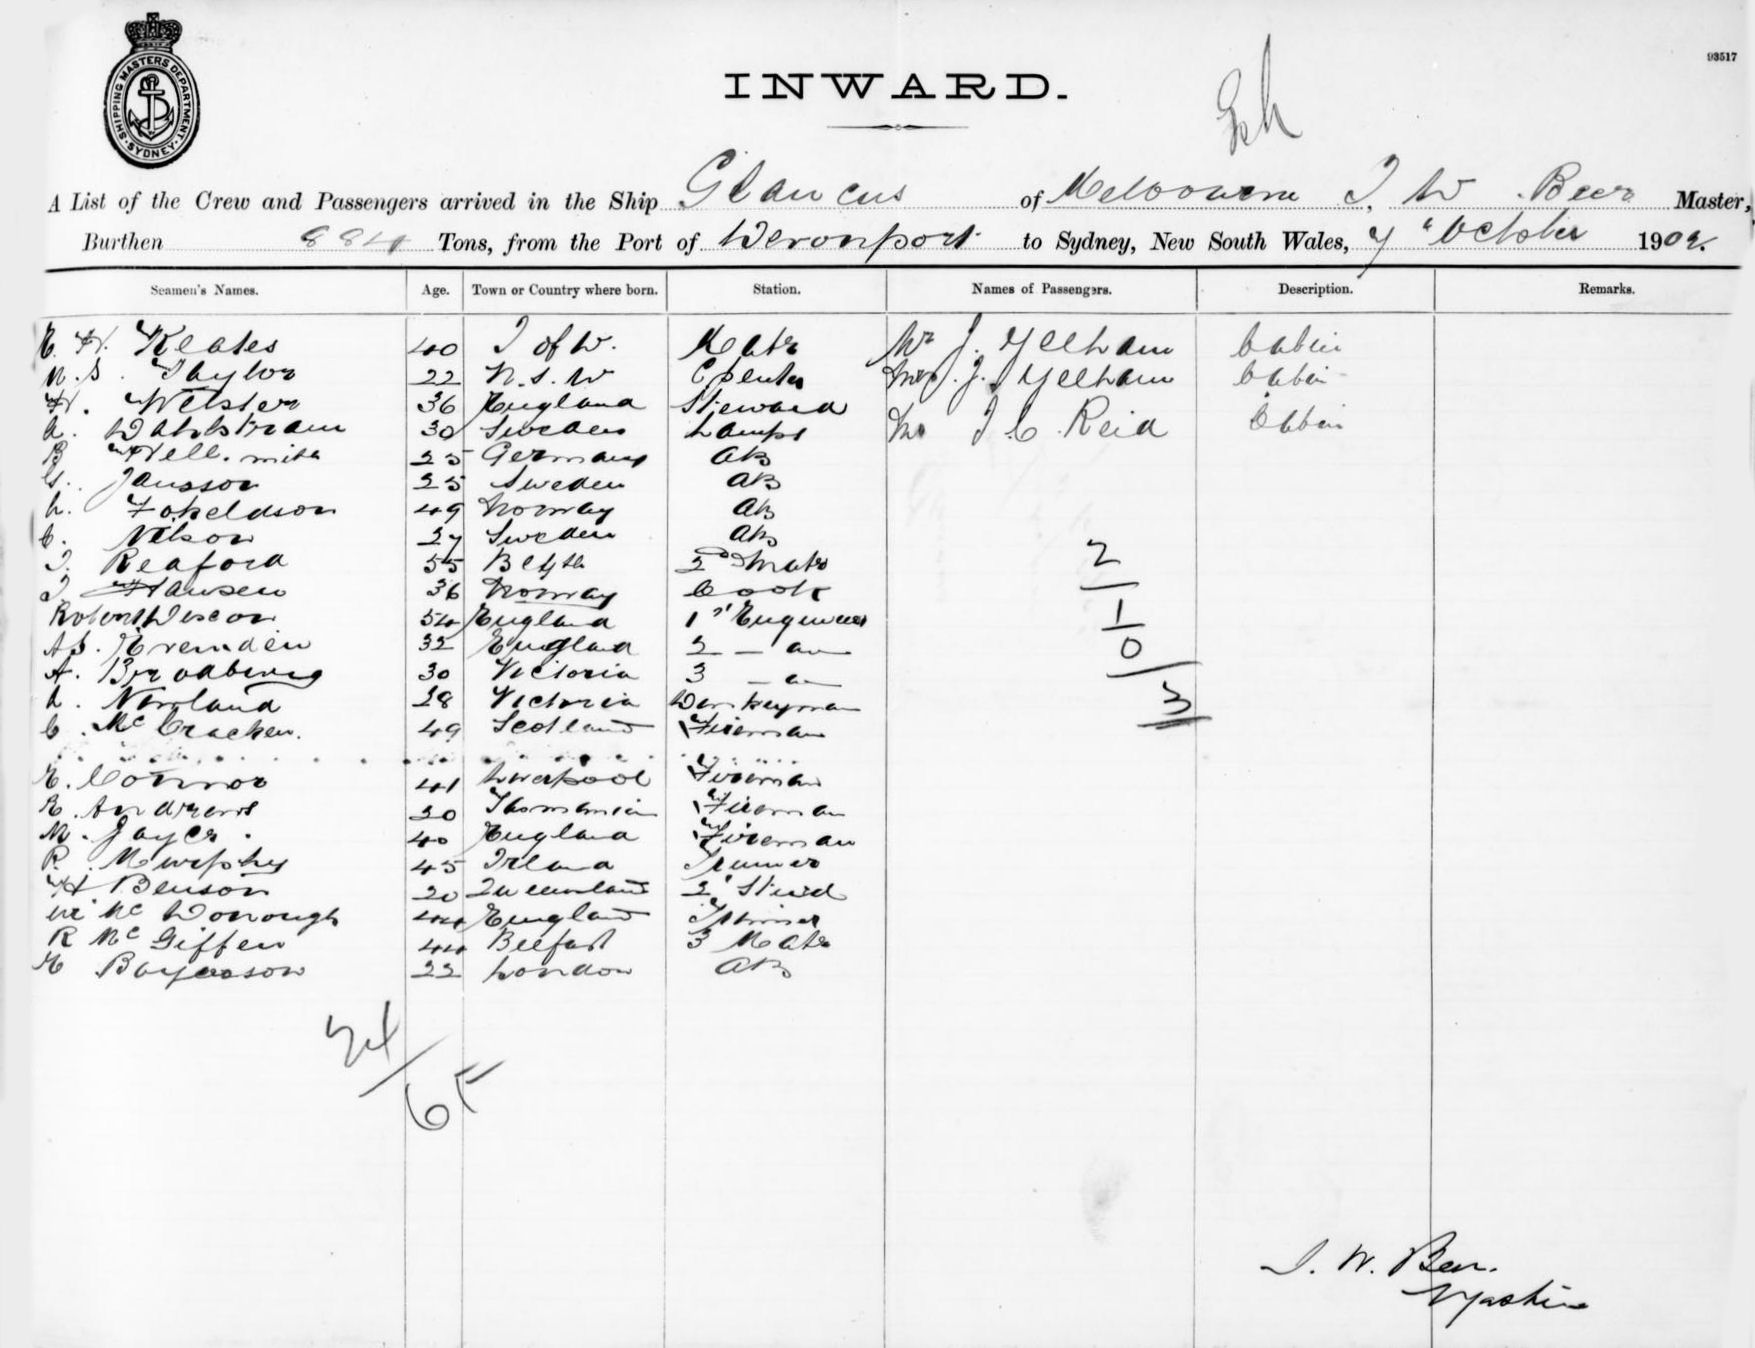 SHIPPING MASTERS DEPARTMENT
SYDNEY
93517
INWARD.
A List of the Crew and Passengers arrived in the Ship Glaucus of Melbourne J. W. Beer Master,
Burthen 884 Tons, from the Port of Devonport to Sydney, New South Wales, 7" October 1902.
Seamen's Names. Age. Town or Country where born. Station. Names of Passengers. Description. Remarks.
E. H. Keates 40 I of W. Mate Mr J. Yelham Cabin
N. S. Taylor 22 N. S. W Mrs J. Yelham Cabin
H. Webster 36 England Steward Mr J. C. Reid Cabin
A. Wahlstram 30 Sweden Lamps
25 Germany AB
G. Jansson 25 Sweden AB
49 Norway AB
C. Nilson 27 Sweden AB
J. Reaford 55 Blyth 2nd Mate
J Hansen 36 Norway Cook
Robert 54 England 1st Engineer
32 England 2
A. 30 Victoria 3
L. Newland 28 Victoria Donkeyman
C. McCracken. 49 Scotland Fireman
E. Connor 41 Liverpool Fireman
E. Andrews 20 Tasmania Fireman
M. Joyce. 40 England Fireman
P. Murphy 45 Irland Trimmer
H Benson 20 Queensland 2nd Stwd
McDonough 44 England Trimmer
R McGiffen 44 Belfast 3 Mate
22 London AB
2
1
0
3
24
65
J. W. Beer.
Master